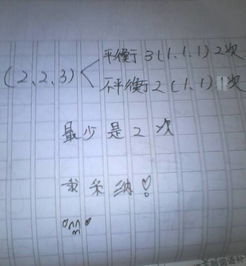 平衡 3(1,1,1) 2次
(2、2、3)
不平衡 2(1,1) 1次
最少是2次
求采纳!